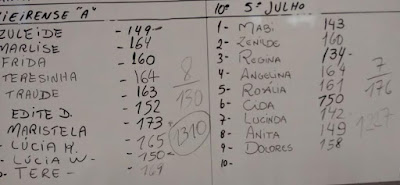 IEIRENSE "A"
ZULEIDE - 149 -
MARLISE - 164
FRIDA - 160
TERESINHA - 164
TRAUDE - 163
EDITE D. - 152
MARISTELA - 173
- LÚCIA M. - 165
- LÚCIA W - 150 -
- TERE - - 169
8
130
1310
10º 5º JULHO
1- MABI 143
2- ZENAIDE 160
3- REGINA 134-
4- ANGELINA 164
5- ROSÁLIA 161
6- CIDA 150
7- LUCINDA 142-
8- ANITA 149
9- DOLORES 158
10-
7
176